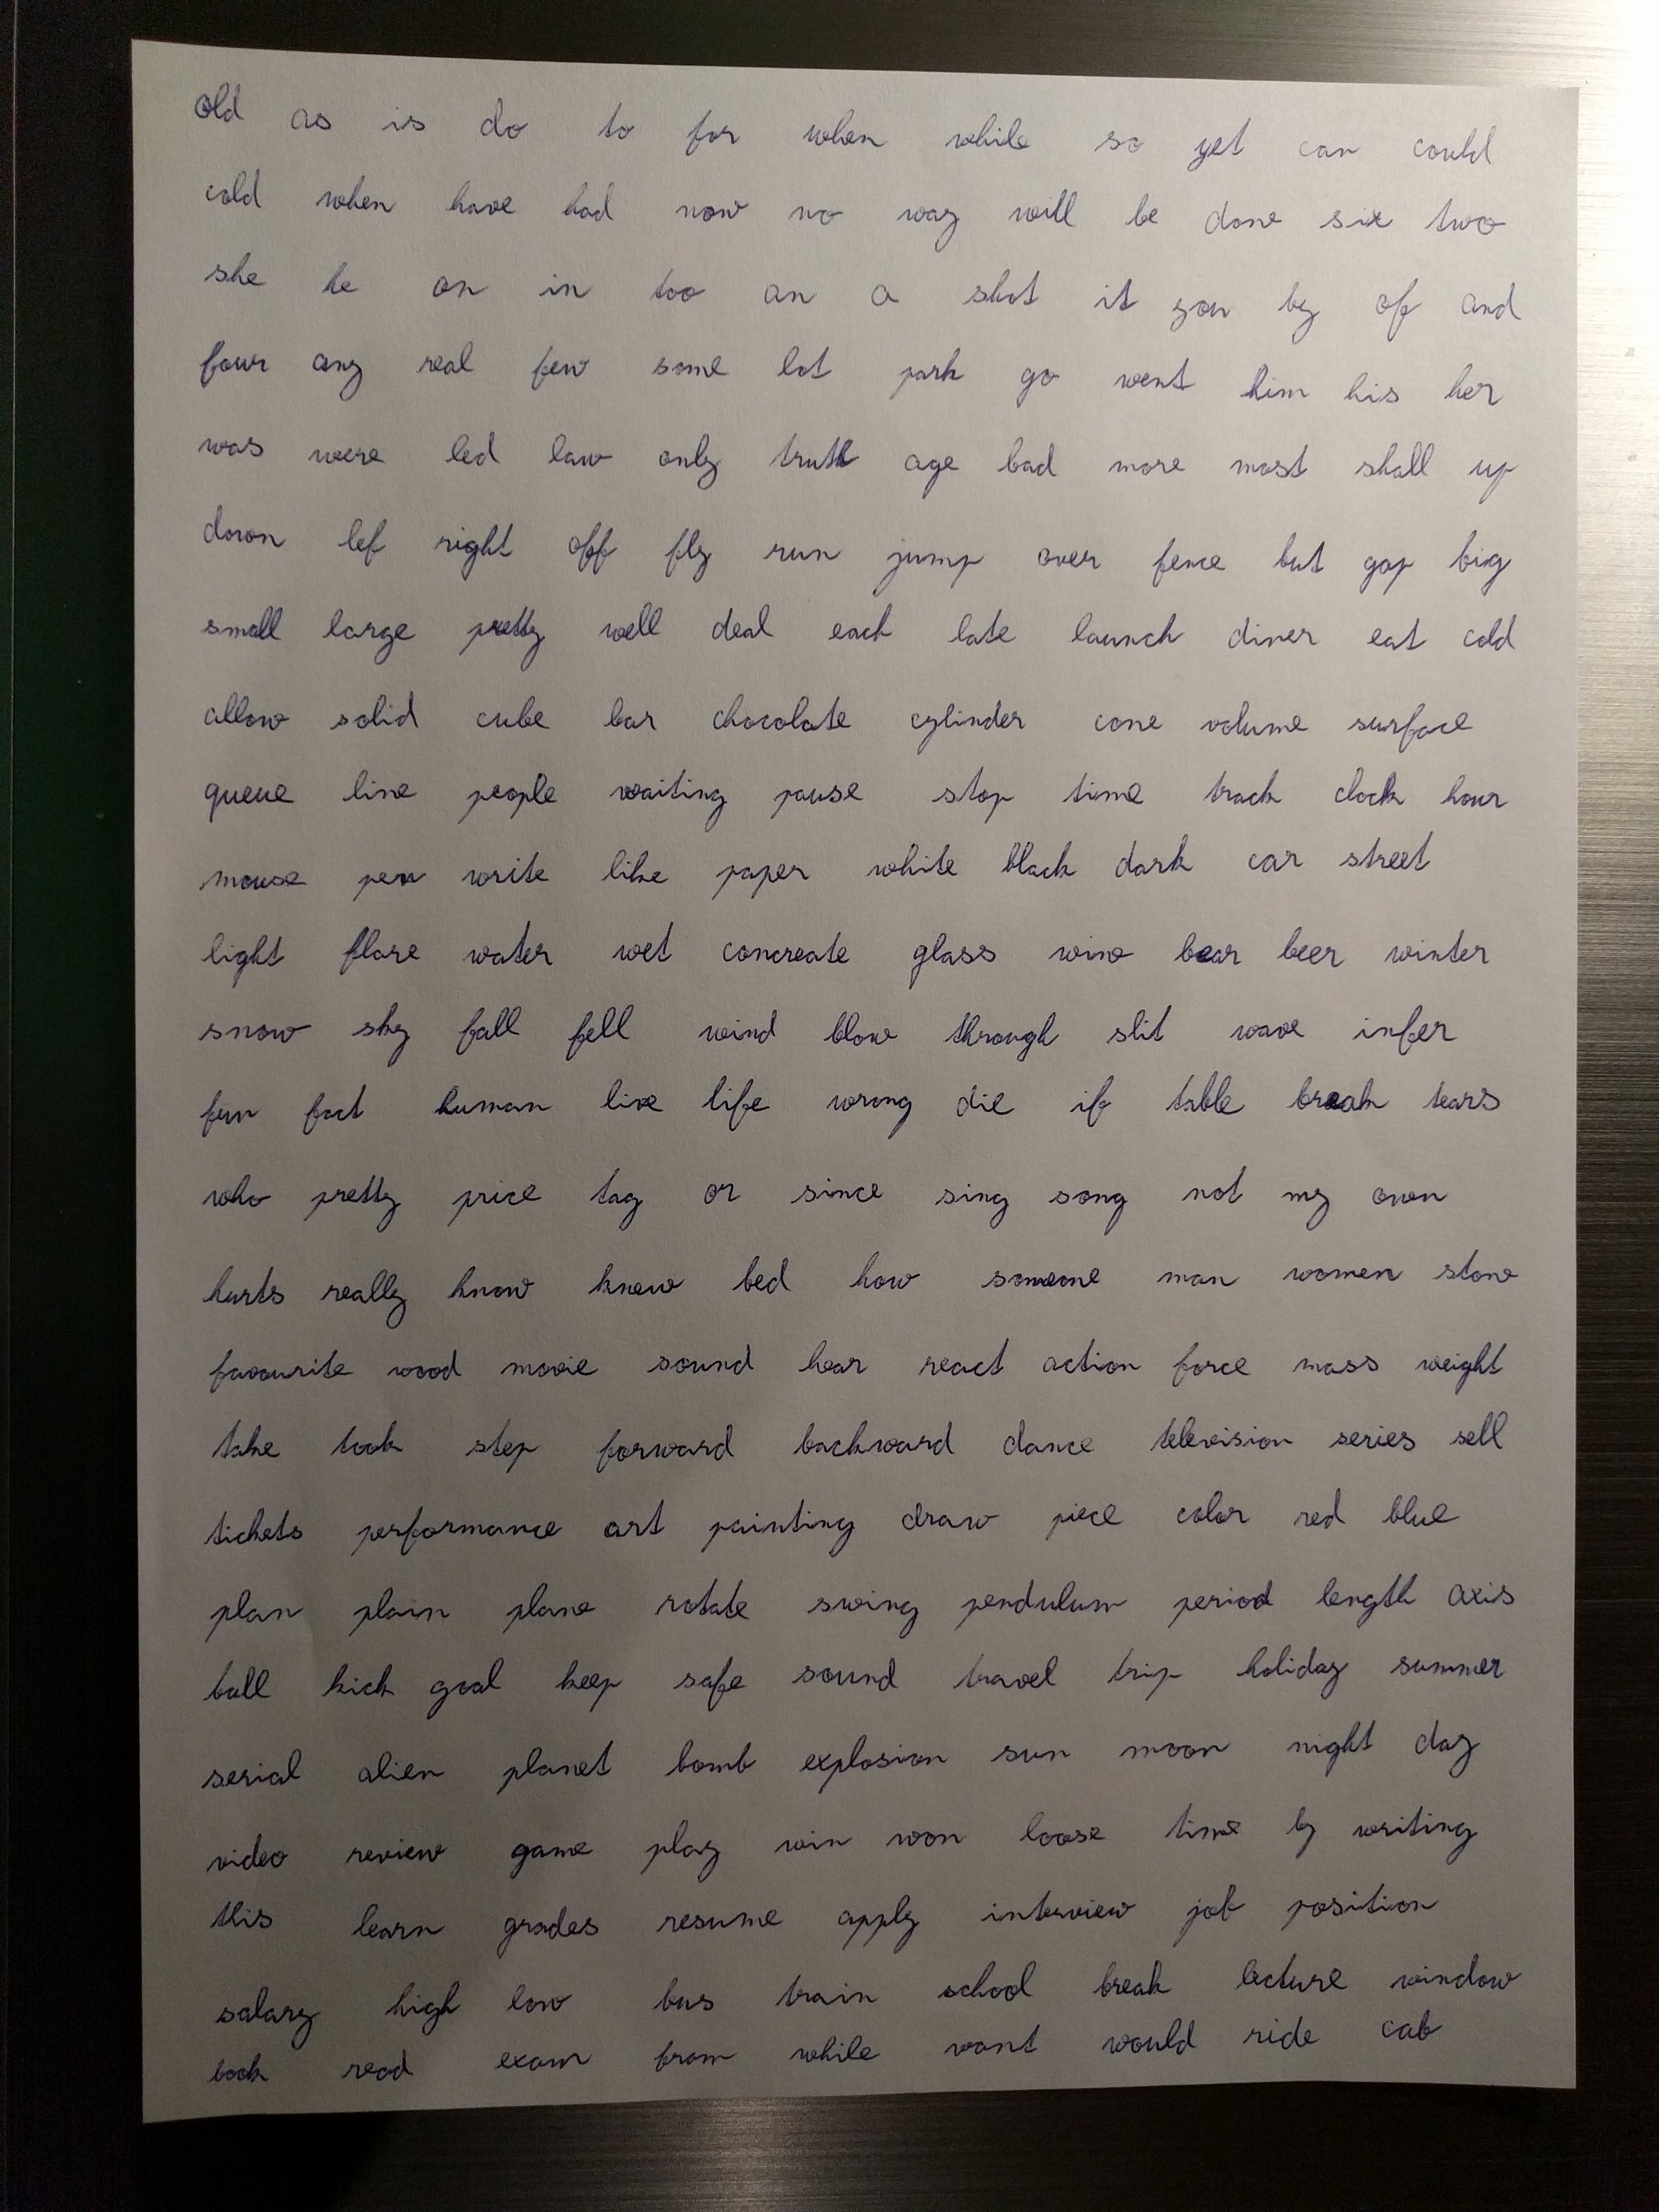 old as is do to for when while so yet can could
cold when have had now no way will be done six two
she he on in too an a shot it you by of and
four any real few some lot park go went him his her
was were led law only truth age bad more most shall up
down lef right off fly run jump over fence but gap big
small large pretty well deal each late launch diner eat cold
allow solid cube bar chocolate cylinder cone volume surface
queue line people waiting pause stop time track clock hour
mouse pen write like paper white black dark car street
light flare water wet concreate glass wine bear beer winter
snow sky fall fell wind blow through slit wave infer
fun fact human live life wrong die if table break tears
who pretty price tag or since sing song not my own
hurts really know knew bed how someone man women stone
favourite wood movie sound hear react action force mass weight
take took step forward backward dance television series sell
tickets performance art painting draw piece color red blue
plan plain plane rotate swing pendulum period length axis
ball kick goal keep safe sound travel trip holiday summer
serial alien planet bomb explosion sun moon night day
video review game play win won loose time by writing
this learn grades resume apply interview job position
salary high low bus train school break lecture window
book read exam from while want would ride cab